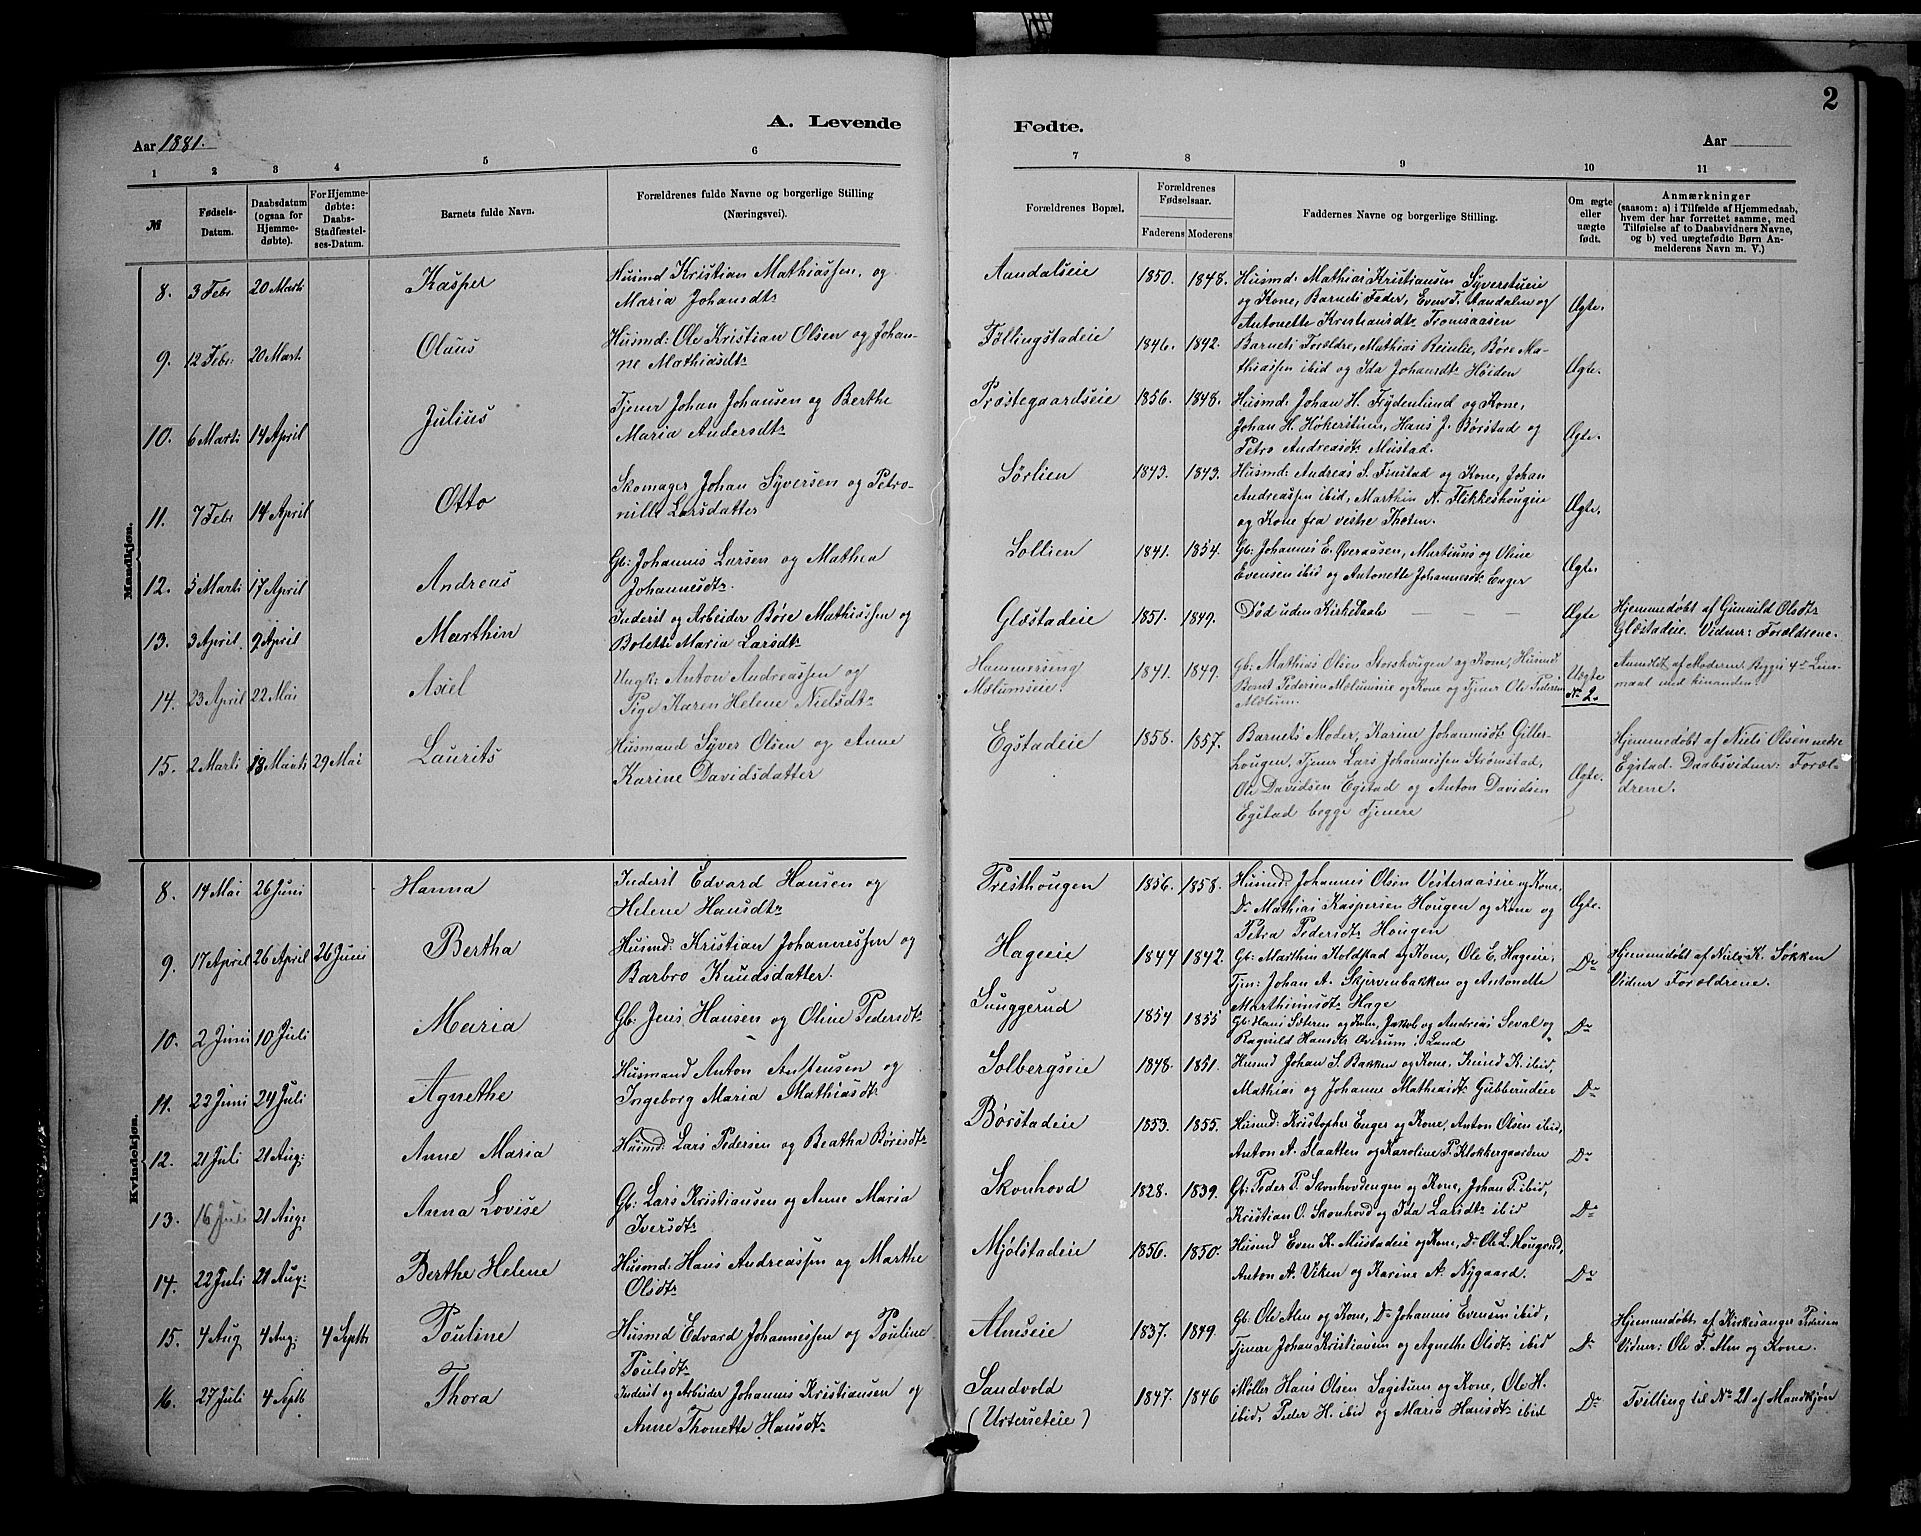 2
A. Levende Fødte.
Aar 1881.
Aar
1 2 3 4 5 6 7 8 9 10 11
№
Fødsels-Datum.
Daabsdatum (ogsaa for Hjemme-døbte).
For Hjemme-døbte: Daabs-Stadfæstel-ses-Datum.
Barnets fulde Navn.
Forældrenes fulde Navne og borgerlige Stilling (Næringsvei).
Forældrenes Bopæl.
Forældrenes Fødselsaar.
Faderens Moderens
Faddernes Navne og borgerlige Stilling.
Om ægte eller uægte født.
Anmærkninger (saasom: a) i Tilfælde af Hjemmedaab, hvem der har forrettet samme, med Tilføielse af to Daabsvidners Navne, og b) ved uægtefødte Børn Anmelderens Navn m. V.)
Mandkjøn.
8. 3 Febr 20 Marts Kasper Husmd Kristian Mathiassen, og Maria Johansdtr Aandalseie 1850. 1848. Husmd: Mathias Kristiansen Syverstueie
og Kone, Barnets Fader, Even T. Aandalen og
Antonette Kristiansdtr Tromsaasen Ægte.
9. 12 Febr: 20 Mart. Olaus Husmd: Ole Kristian Olsen og Johan-
ne Mathiasdtr Føllingstadeie 1846. 1842. Barnets Forældre, Mathias Reinlie, Børe Ma-
thiassen ibid og Ida Johansdtr Høiden Ægte.
10. 6 Marts 14 April Julius Tjener Johan Johansen og Berthe
Maria Andersdtr Præstegaardseie 1856. 1848. Husmd: Johan H. Frydenlund og Kone,
Johan H. Høkerstuen, Hans J. Børstad og
Petra Andreasdtr Mustad. Ægte.
11. 7 Febr 14 April Otto Skomager Johan Syversen og Petro-
nille Larsdatter Sørlien 1843. 1843. Husmd: Andreas S. Finstad og Kone, Johan
Andreassen ibid, Marthin A. Flikkeshougen
og Kone fra vestre Thoten. Ægte.
12. 5 Marts 17 April Andreas Gb: Johannes Larsen og Mathea
Johannesdtr. Sollien 1841. 1854. Gb: Johannes E. Øveraasen, Martinus og Oline
Evensen ibid og Antonette Johannesdtr Enger Ægte
13. 3 April. 9 April Marthin Inderst og Arbeider Børe Mathiassen og
Bolette Maria Larsdtr Glæstadeie 1851. 1849. Død uden Kirkedaab Ægte Hjemmedøbt af Gunild Olsdtr
Glæstadeie. Vidner: Forældrene.
14. 23 April 22 Mai Axel Ungk: Anton Andreassen og
Pige Karen Helene Nielsdtr Hammerseng
Mælumseie. 1841. 1849. Gb: Mathias Olsen Storskougen og Kone, Husmd
Bernt Pedersen Mælumseie og Kone og Tjener Ole Pedersen
Mælum. Uægte
№ 2. Anmeldt af Moderen. Begges 4de Leier-
maal med hinanden.
15. 2 Marts 13 Marts 29 Mai Laurits Husmand Syver Olsen og Anne
Karine Davidsdatter Egstadeie 1858. 1857. Barnets Moder, Karine Johannesdtr Giller-
hougen, Tjener Lars Johannessen Strømstad,
Ole Davidsen Egstad og Anton Davidsen
Egstad begge Tjenere Ægte. Hjemmedøbt af Niels Olsen nedre
Egstad. Daabsvidner: Foræl-
drene.
Kvindekjøn.
8. 14 Mai 26 Juni Hanna Inderst Edvard Hansen og
Helene Hansdtr Præsthougen 1856. 1858. Husmd: Johannes Olsen Vesteraaseie og Kone,
Do Mathias Kaspersen Hougen og Kone og
Petra Pedersdtr Hougen Ægte.
9. 17 April 26 April 26 Juni Bertha Husmd: Kristian Johannessen og
Barbro Knudsdatter. Hageeie 1844 1842. Gb: Marthin Koldstad og Kone, Ole E. Hageeie,
Tjen: Johan A. Skjervenbakken og Antonette
Marthinusdtr Hage Do Hjemmedøbt af Niels K. Søkken
Vidner Forældrene.
10. 2 Juni 10 Juli Maria Gb: Jens Hansen og Oline Pedersdtr Snuggerud 1854 1855 Gb: Hans Sæteren og Kone, Jakob og Andreas Seval og
Ragnild Hansdtr Overum i Land Do
11. 22 Juni 24 Juli Agnethe Husmand Anton Antensen og
Ingeborg Maria Mathiasdtr Solbergseie 1848. 1851. Husmd Johan S. Bakken og Kone, Knud K. ibid,
Mathias og Johanne Mathiasdtr Gubberudeie Do
12. 21 Juli 21 Aug: Anne Maria Husmd: Lars Pedersen og Beatha Børesdtr Børstadeie 1853. 1855. Husmd: Kristopher Enger og Kone, Anton Olsen ibid,
Anton A. Slaatten og Karoline P. Klokkergaarden Do
13. 16 Juli 21 Aug: Anna Lovise Gb: Lars Kristiansen og Anne Maria
Iversdtr Skonhovd 1828. 1839. Gb: Peder P. Skonhovdengen og Kone, Johan P. ibid,
Kristian O. Skonhovd og Ida Larsdtr ibid Do
14. 22 Juli 21 Aug: Berthe Helene Husmd: Hans Andreassen og Marthe
Olsdtr Mjølstadeie 1856. 1850. Husmd Even K. Mustadeie og Kone, Do Ole L. Hougrud,
Anton A. Viken og Karine A. Nygaard. Do
15. 4 Aug 4 Aug: 4 Septb Pouline Husmd Edvard Johannessen og Pouline
Poulsdtr Almseie 1837. 1849. Gb: Ole Alm og Kone, Do Johannes Evensen ibid,
Tjenere Johan Kristiansen og Agnethe Olsdtr ibid Do Hjemmedøbt af Kirkesanger Pedersen
Vidner: Ole T. Alm og Kone.
16. 27 Juli 4 Septb Thora Inderst og Arbeider Johannes Kristiansen og
Anne Thonette Hansdtr Sandvold
(Urterseteie) 1847. 1846 Møller Hans Olsen Sagstuen og Kone, Ole H.
ibid, Peder H. ibid og Maria Hansdtr ibid Do Tvilling til No 21 af Mandkjøn